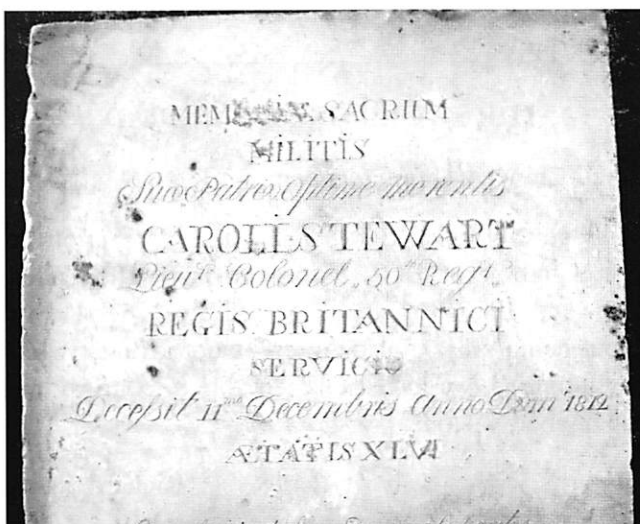 SACRUM
MILITIS
Suo Patrie Optime Merentis
CAROLI STEWART
Lieut. Colonel. 50th Regt.
REGIS BRITANNICI
SERVICIO
Decessit 11mo Decembris Anno Dom 1812
ÆTATIS XLVI